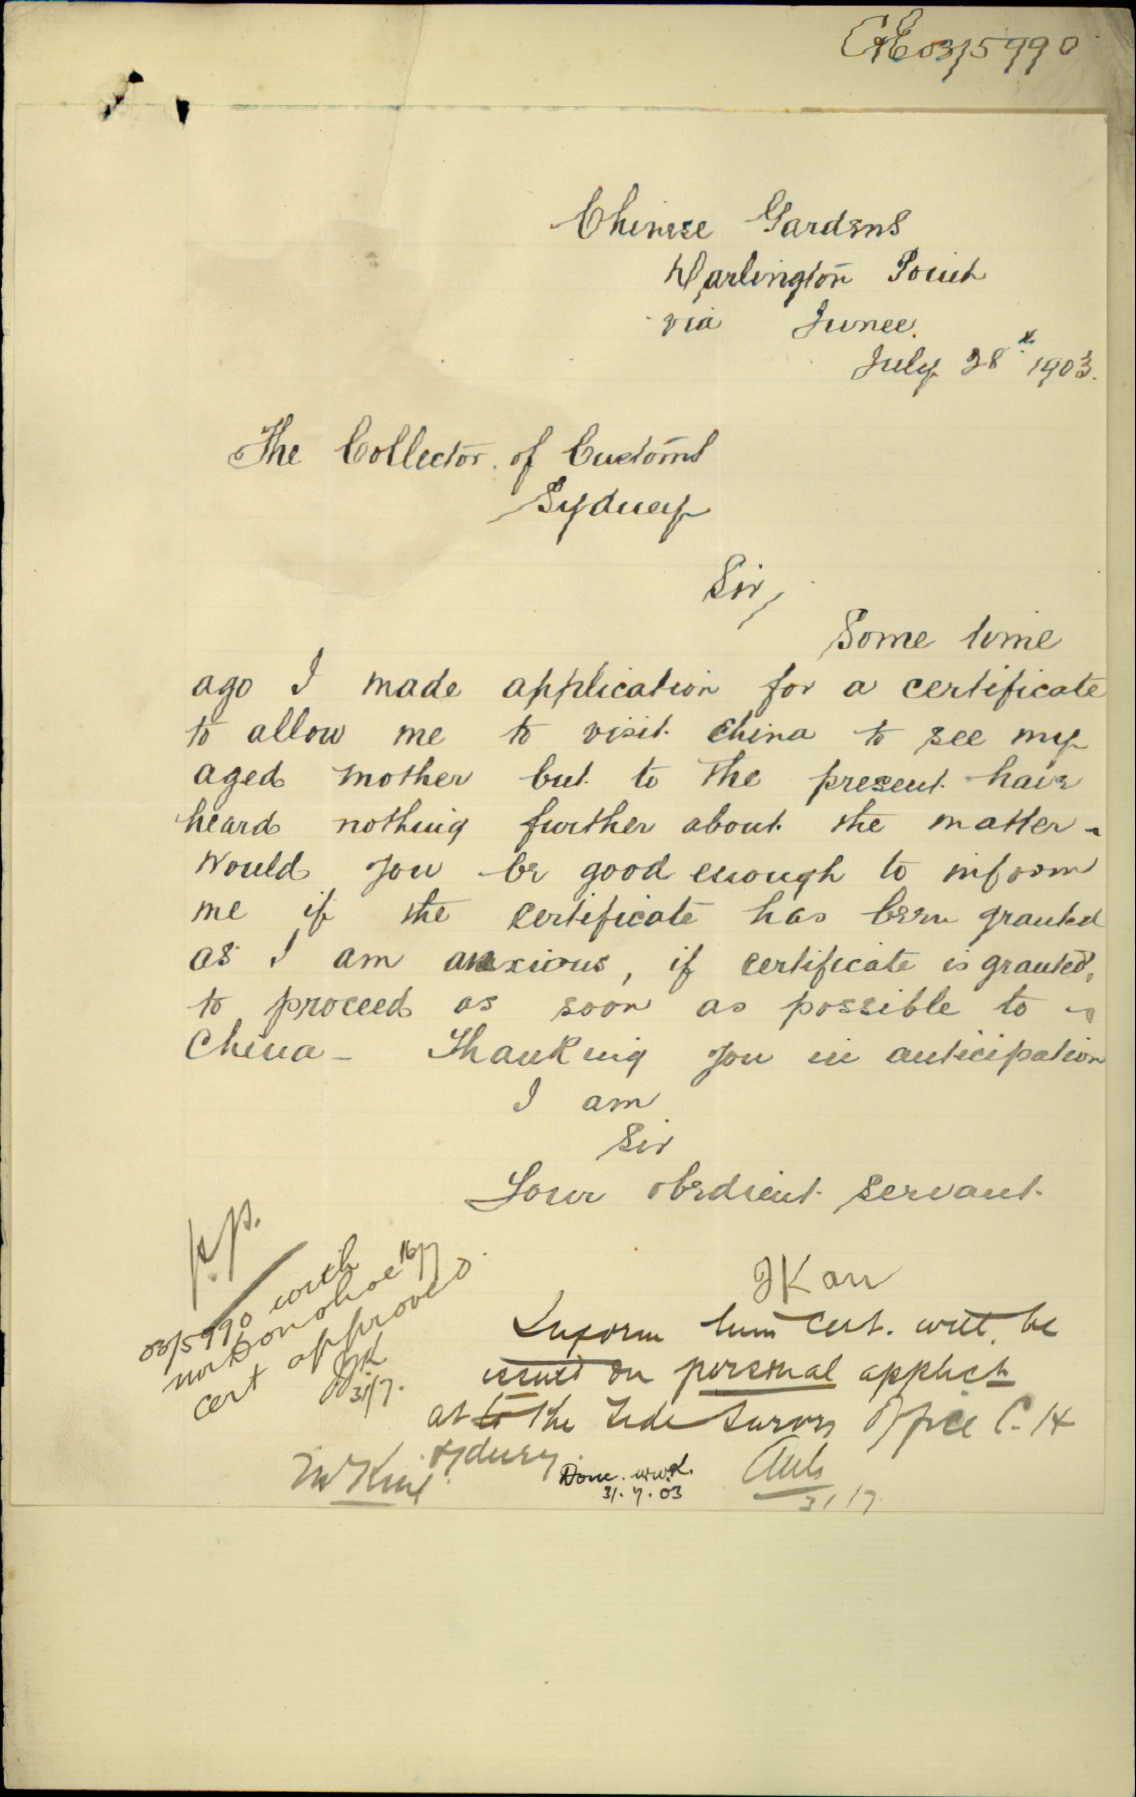 03/5990
Chinese Gardens
Darlington Point
via Junee.
July 28th 1903.
The Collector of Customs
Sydney
Sir,
Some time
ago I made application for a certificate
to allow me to visit China to see my
aged mother but to the present have
heard nothing further about the matter -
Would you be good enough to inform
me if the certificate has been granted
as I am anxious, if certificate is granted,
to proceed as soon as possible to
China - Thanking you in anticipation
I am
Sir
Your obedient servant.
J Kan
p.p.
03/5990 with
Mr Donohoe 16/7
cert approved
31/7.
Inform him Cert. will be
issued on personal applicn
at to the Tide Survrs Office C. H
Sydney.
Mr King
Done. W.W.K.
31.7.03
31/7